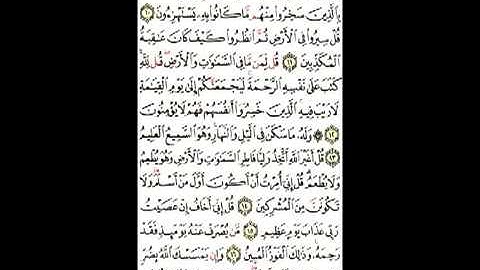 بِٱلَّذِينَ سَخِرُوا۟ مِنْهُم مَّا كَانُوا۟ بِهِۦ يَسْتَهْزِءُونَ ١٠
قُلْ سِيرُوا۟ فِى ٱلْأَرْضِ ثُمَّ ٱنظُرُوا۟ كَيْفَ كَانَ عَٰقِبَةُ
ٱلْمُكَذِّبِينَ ١١ قُل لِّمَن مَّا فِى ٱلسَّمَٰوَٰتِ وَٱلْأَرْضِ قُل لِّلَّهِ
كَتَبَ عَلَىٰ نَفْسِهِ ٱلرَّحْمَةَ لَيَجْمَعَنَّكُمْ إِلَىٰ يَوْمِ ٱلْقِيَٰمَةِ
لَا رَيْبَ فِيهِ ٱلَّذِينَ خَسِرُوٓا۟ أَنفُسَهُمْ فَهُمْ لَا يُؤْمِنُونَ
١٢ ۞ وَلَهُۥ مَا سَكَنَ فِى ٱلَّيْلِ وَٱلنَّهَارِ وَهُوَ ٱلسَّمِيعُ ٱلْعَلِيمُ
١٣ قُلْ أَغَيْرَ ٱللَّهِ أَتَّخِذُ وَلِيًّا فَاطِرِ ٱلسَّمَٰوَٰتِ وَٱلْأَرْضِ وَهُوَ يُطْعِمُ
وَلَا يُطْعَمُ قُلْ إِنِّىٓ أُمِرْتُ أَنْ أَكُونَ أَوَّلَ مَنْ أَسْلَمَ وَلَا
تَكُونَنَّ مِنَ ٱلْمُشْرِكِينَ ١٤ قُلْ إِنِّىٓ أَخَافُ إِنْ عَصَيْتُ
رَبِّى عَذَابَ يَوْمٍ عَظِيمٍ ١٥ مَّن يُصْرَفْ عَنْهُ يَوْمَئِذٍ فَقَدْ
رَحِمَهُۥ وَذَٰلِكَ ٱلْفَوْزُ ٱلْمُبِينُ ١٦ وَإِن يَمْسَسْكَ ٱللَّهُ بِضُرٍّ